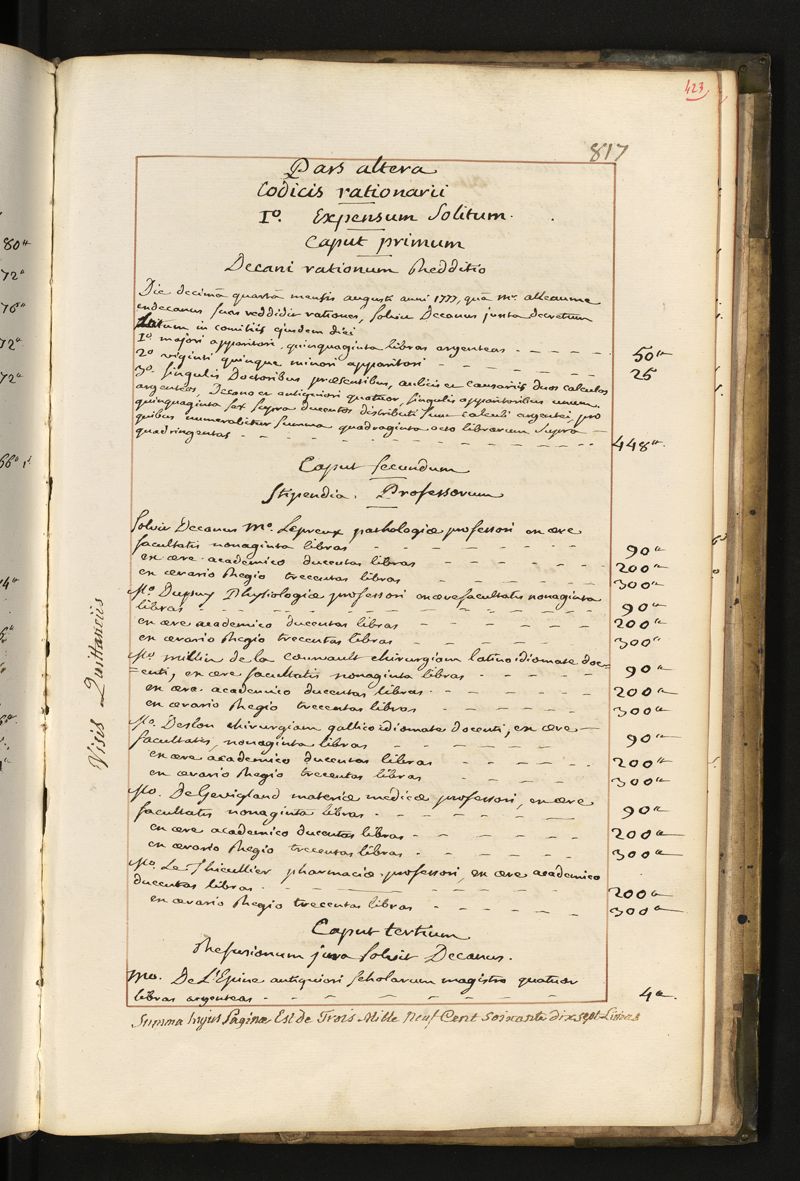 423
817
Pars altera
Codicis rationarii
1º. Expensum Solitum.
Caput primum
Decani rationum Redditio
Die decimâ quartâ mensis augusti anni 1777, quâ Mr. alleaume
exdecanus suas reddidit rationes, solvit Decanus juxta decretum
latum in comitiis ejusdem diei
1º majori apparitori, quinquaginta libras argenteas - - - - - 50ᵗᵗ
2º viginti quinque minori apparitori - - - - - - 25
3º singulis Doctoribus præsentibus, aulicis et causariis duos calculos
argenteos, Decano et antiquiori quatuor, singulis apparitoribus unum.
quinquaginta sex supra ducentos distributi sunt calculi argentei, pro
quibus numerabitur summa quadraginta octo librarum supra
quadringentas - - - - - - - - 448ᵗᵗ.
Caput secundum
Stipendia. Professorum
Solvit Decanus Mº. Lepreux pathologiæ professori ex ære
facultatis nonaginta libras - - - - - - 90ᵗᵗ
ex ære academico ducentas libras - - - - - 200ᵗᵗ
ex ærario Regio trecentas libras - - - - - 300ᵗᵗ
Mº. Dupuy Physiologiæ professori ex ære facultatis nonaginta
libras - - - - - - - - 90ᵗᵗ
ex ære academico ducentas libras - - - - - 200ᵗᵗ
ex ærario Regio trecentas libras - - - - - 300ᵗᵗ
Mº. Millin de la courvault chirurgiam latino idiomate doc=
=enti, ex ære facultatis nonaginta libras - - - - 90ᵗᵗ
ex ære academico ducentas libras - - - - - 200ᵗᵗ
ex ærario Regio trecentas libras - - - - - 300ᵗᵗ
Mº. Deslon chirurgiam gallico idiomate docenti, ex ære
facultatis, nonaginta libras - - - - - 90ᵗᵗ
ex ære academico ducentas libras - - - - - 200ᵗᵗ
ex ærario Regio trecentas libras - - - - - 300ᵗᵗ
Mº. De Gevigland materiæ medicæ professori, ex ære
facultatis nonaginta libras - - - - - 90ᵗᵗ
ex ære academico ducentas libras - - - - - 200ᵗᵗ
ex ærario Regio trecentas libras - - - - - 300ᵗᵗ
Mº. Le Thieullier pharmaciæ professori, ex ære academico
ducentas libras - - - - - - 200ᵗᵗ
ex ærario Regio trecentas libras - - - - - 300ᵗᵗ
Caput tertium
Refusionum jura solvit Decanus.
Mo. De L'Epine antiquiori scholarum magistro quatuor
libras argenteas - - - - - - - 4ᵗᵗ.
Summa hujus Paginæ Est de Trois Mille Neuf Cent soixante dix sept Livres
Visis Quittanciis
80ᵗᵗ
72ᵗᵗ
76ᵗᵗ
72ᵗᵗ
72ᵗᵗ